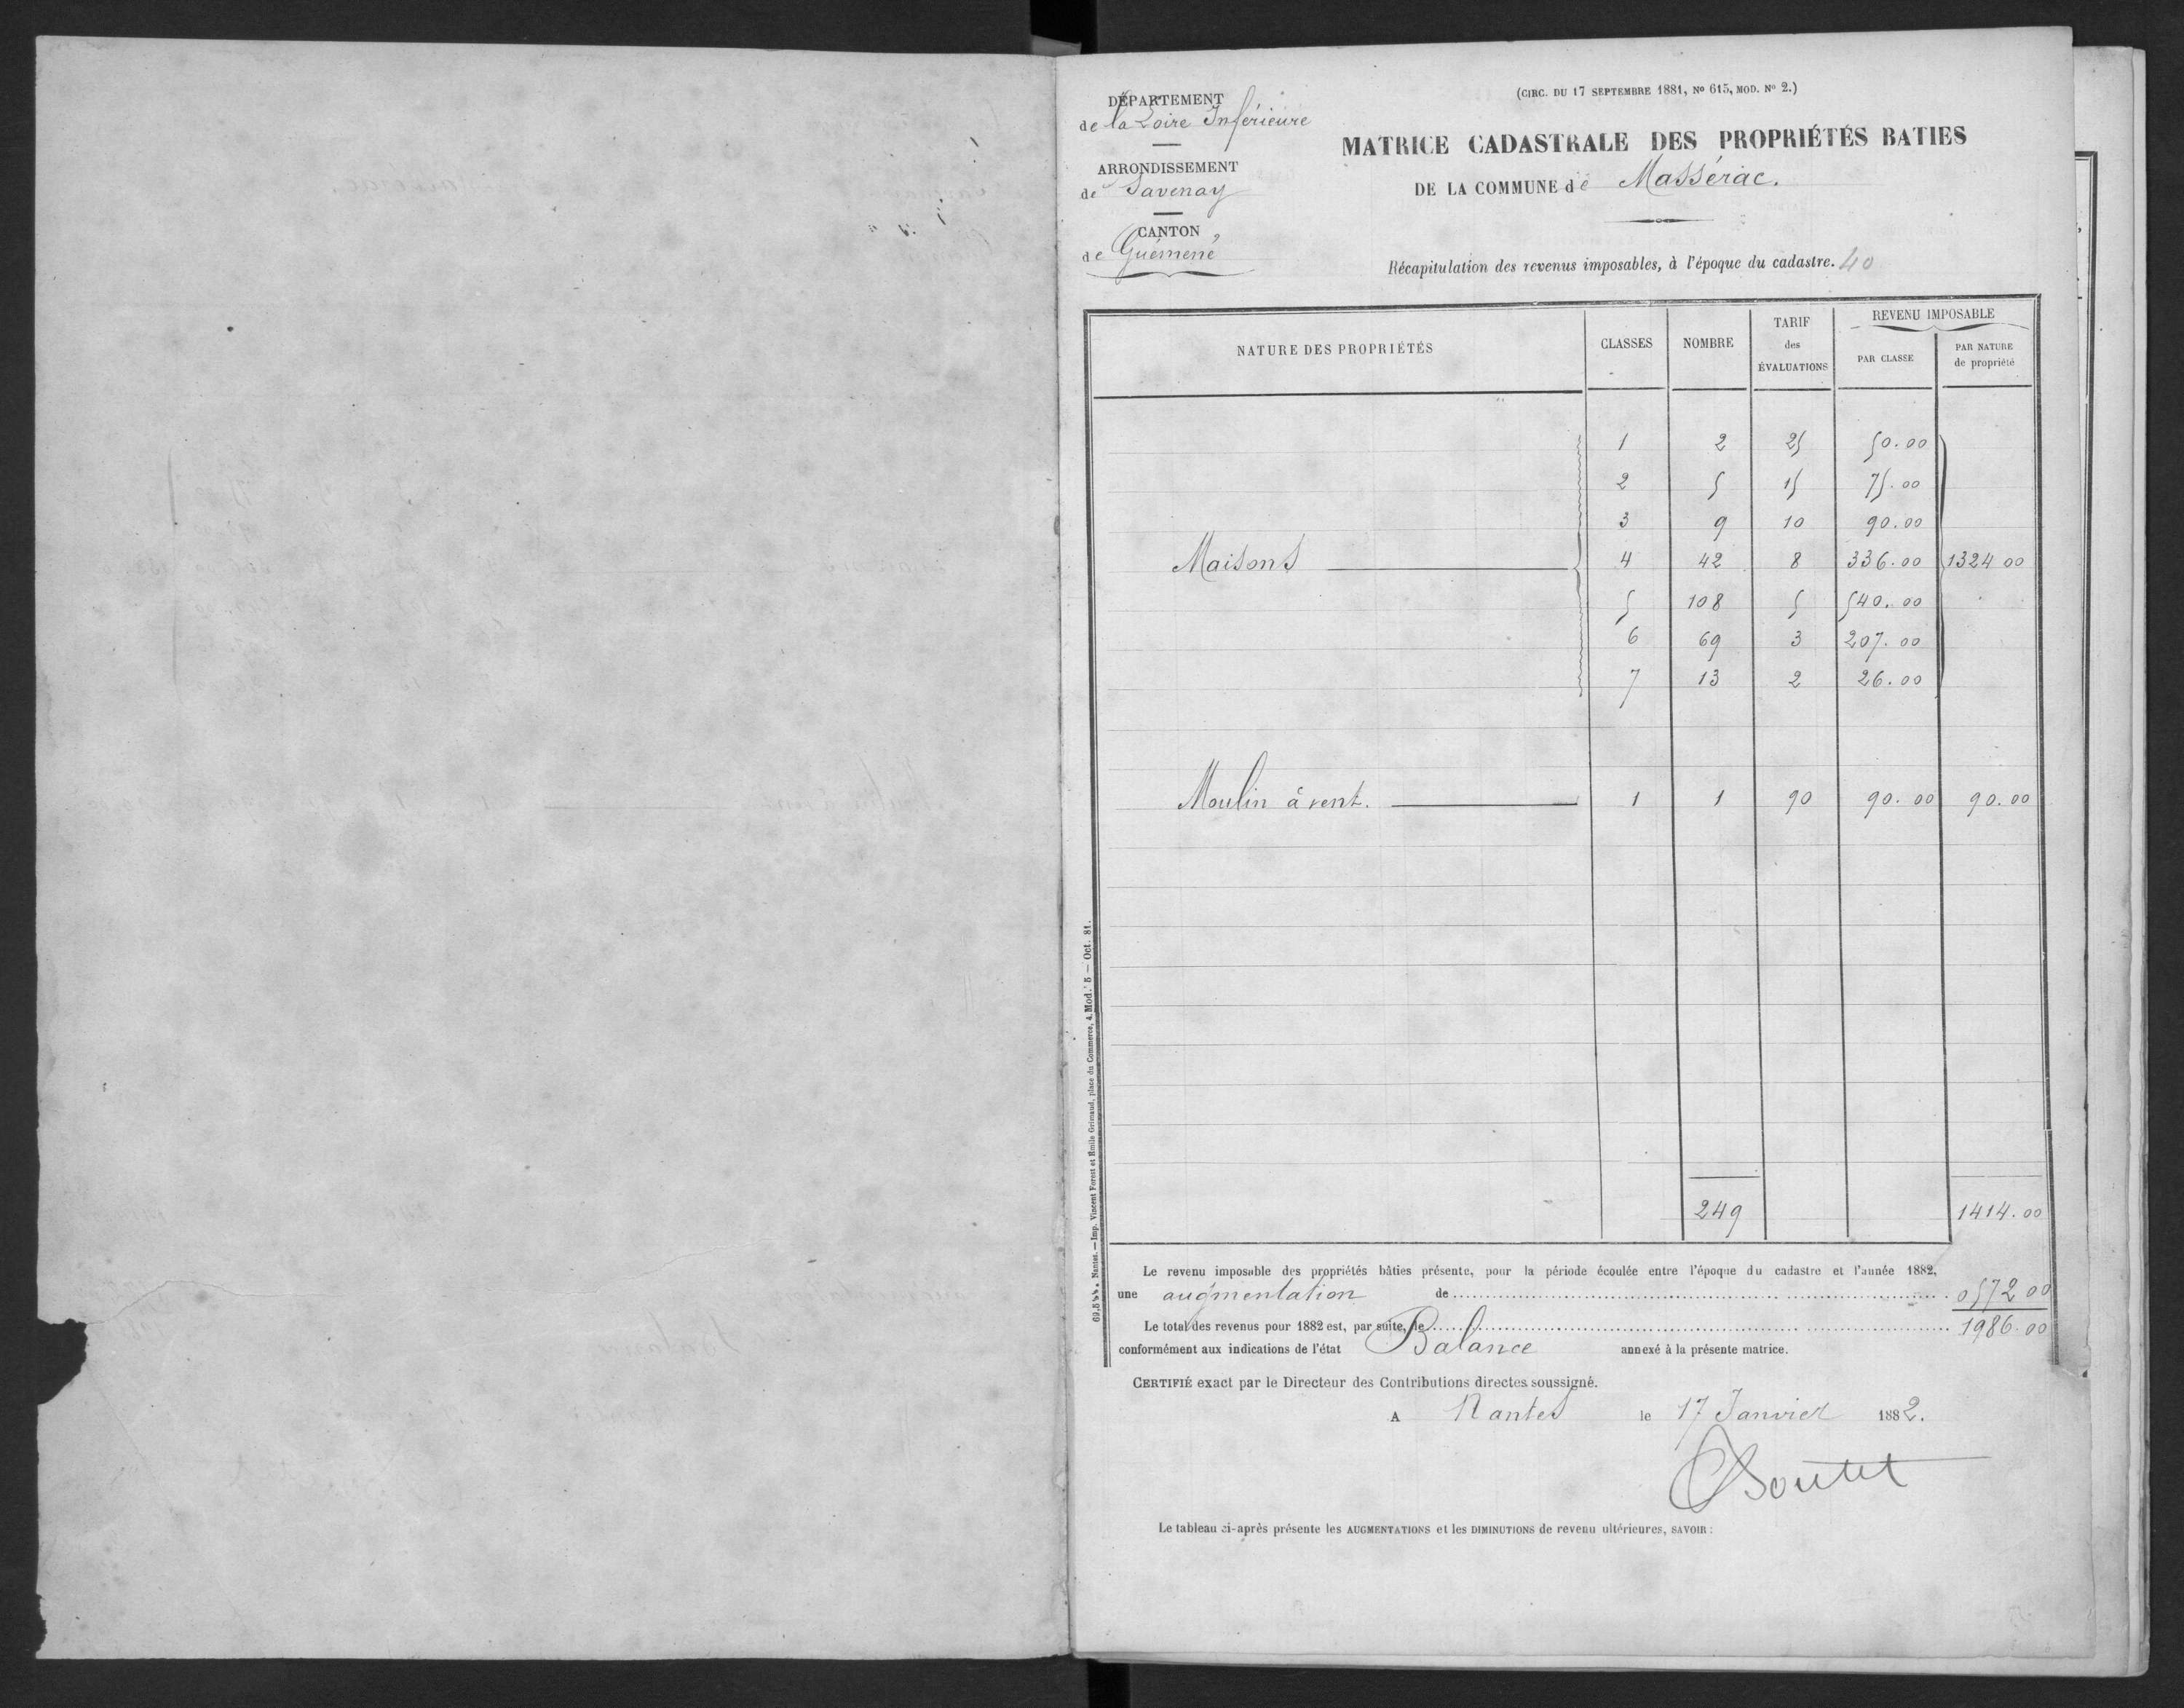 DÉPARTEMENT
de la Loire Inférieure
ARRONDISSEMENT
de Savenay
CANTON
de Guémené
(CIRC. DU 17 SEPTEMBRE 1881, No 615, MOD. No 2.)
MATRICE CADASTRALE DES PROPRIÉTÉS BATIES
DE LA COMMUNE de Massérac.
Récapitulation des revenus imposables, à l'époque du cadastre. 40
NATURE DES PROPRIÉTÉS CLASSES NOMBRE TARIF des ÉVALUATIONS REVENU IMPOSABLE PAR CLASSE PAR NATURE de propriété
1 2 25 50.00
2 5 15 75.00
3 9 10 90.00
Maisons 4 42 8 336.00 1324 00
5 108 5 540.00
6 69 3 207.00
7 13 2 26.00
Moulin à vent. 1 1 90 90.00 90.00
249 1414.00
Le revenu imposable des propriétés bâties présente, pour la période écoulée entre l'époque du cadastre et l'année 1882,
une augmentation de 0572 00
Le total des revenus pour 1882 est, par suite, de 1986.00
conformément aux indications de l'état Balance annexé à la présente matrice.
CERTIFIÉ exact par le Directeur des Contributions directes soussigné.
A Nantes le 17 Janvier 1882.
Boutet
Le tableau ci-après présente les AUGMENTATIONS et les DIMINUTIONS de revenu ultérieures, SAVOIR :
Nantes. — Imp. Vincent Forest et Emile Grimaud, place du Commerce, 4. Mod. 5 — Oct. 81.